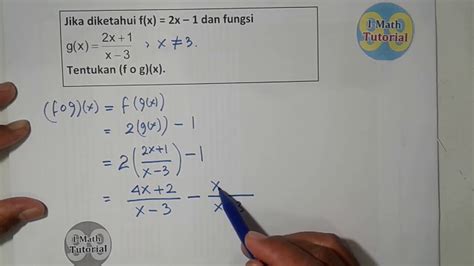 Jika diketahui f(x) = 2x – 1 dan fungsi
g(x) = \frac{2x + 1}{x – 3} , x ≠ 3.
Tentukan (f o g)(x).
i Math
Tutorial
(fog)(x) = f(g(x))
= 2(g(x)) – 1
= 2(\frac{2x+1}{x-3}) – 1
= \frac{4x+2}{x-3} – \frac{x}{x-3}
i Math
Tutorial